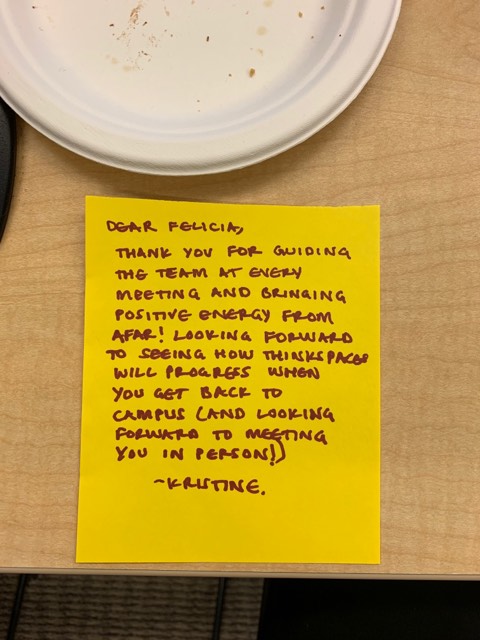 DEAR FELICIA,
THANK YOU FOR GUIDING
THE TEAM AT EVERY
MEETING AND BRINGING
POSITIVE ENERGY FROM
AFAR! LOOKING FORWARD
TO SEEING HOW THINKSPACES
WILL PROGRESS WHEN
YOU GET BACK TO
CAMPUS (AND LOOKING
FORWARD TO MEETING
YOU IN PERSON!)
~KRISTINE.